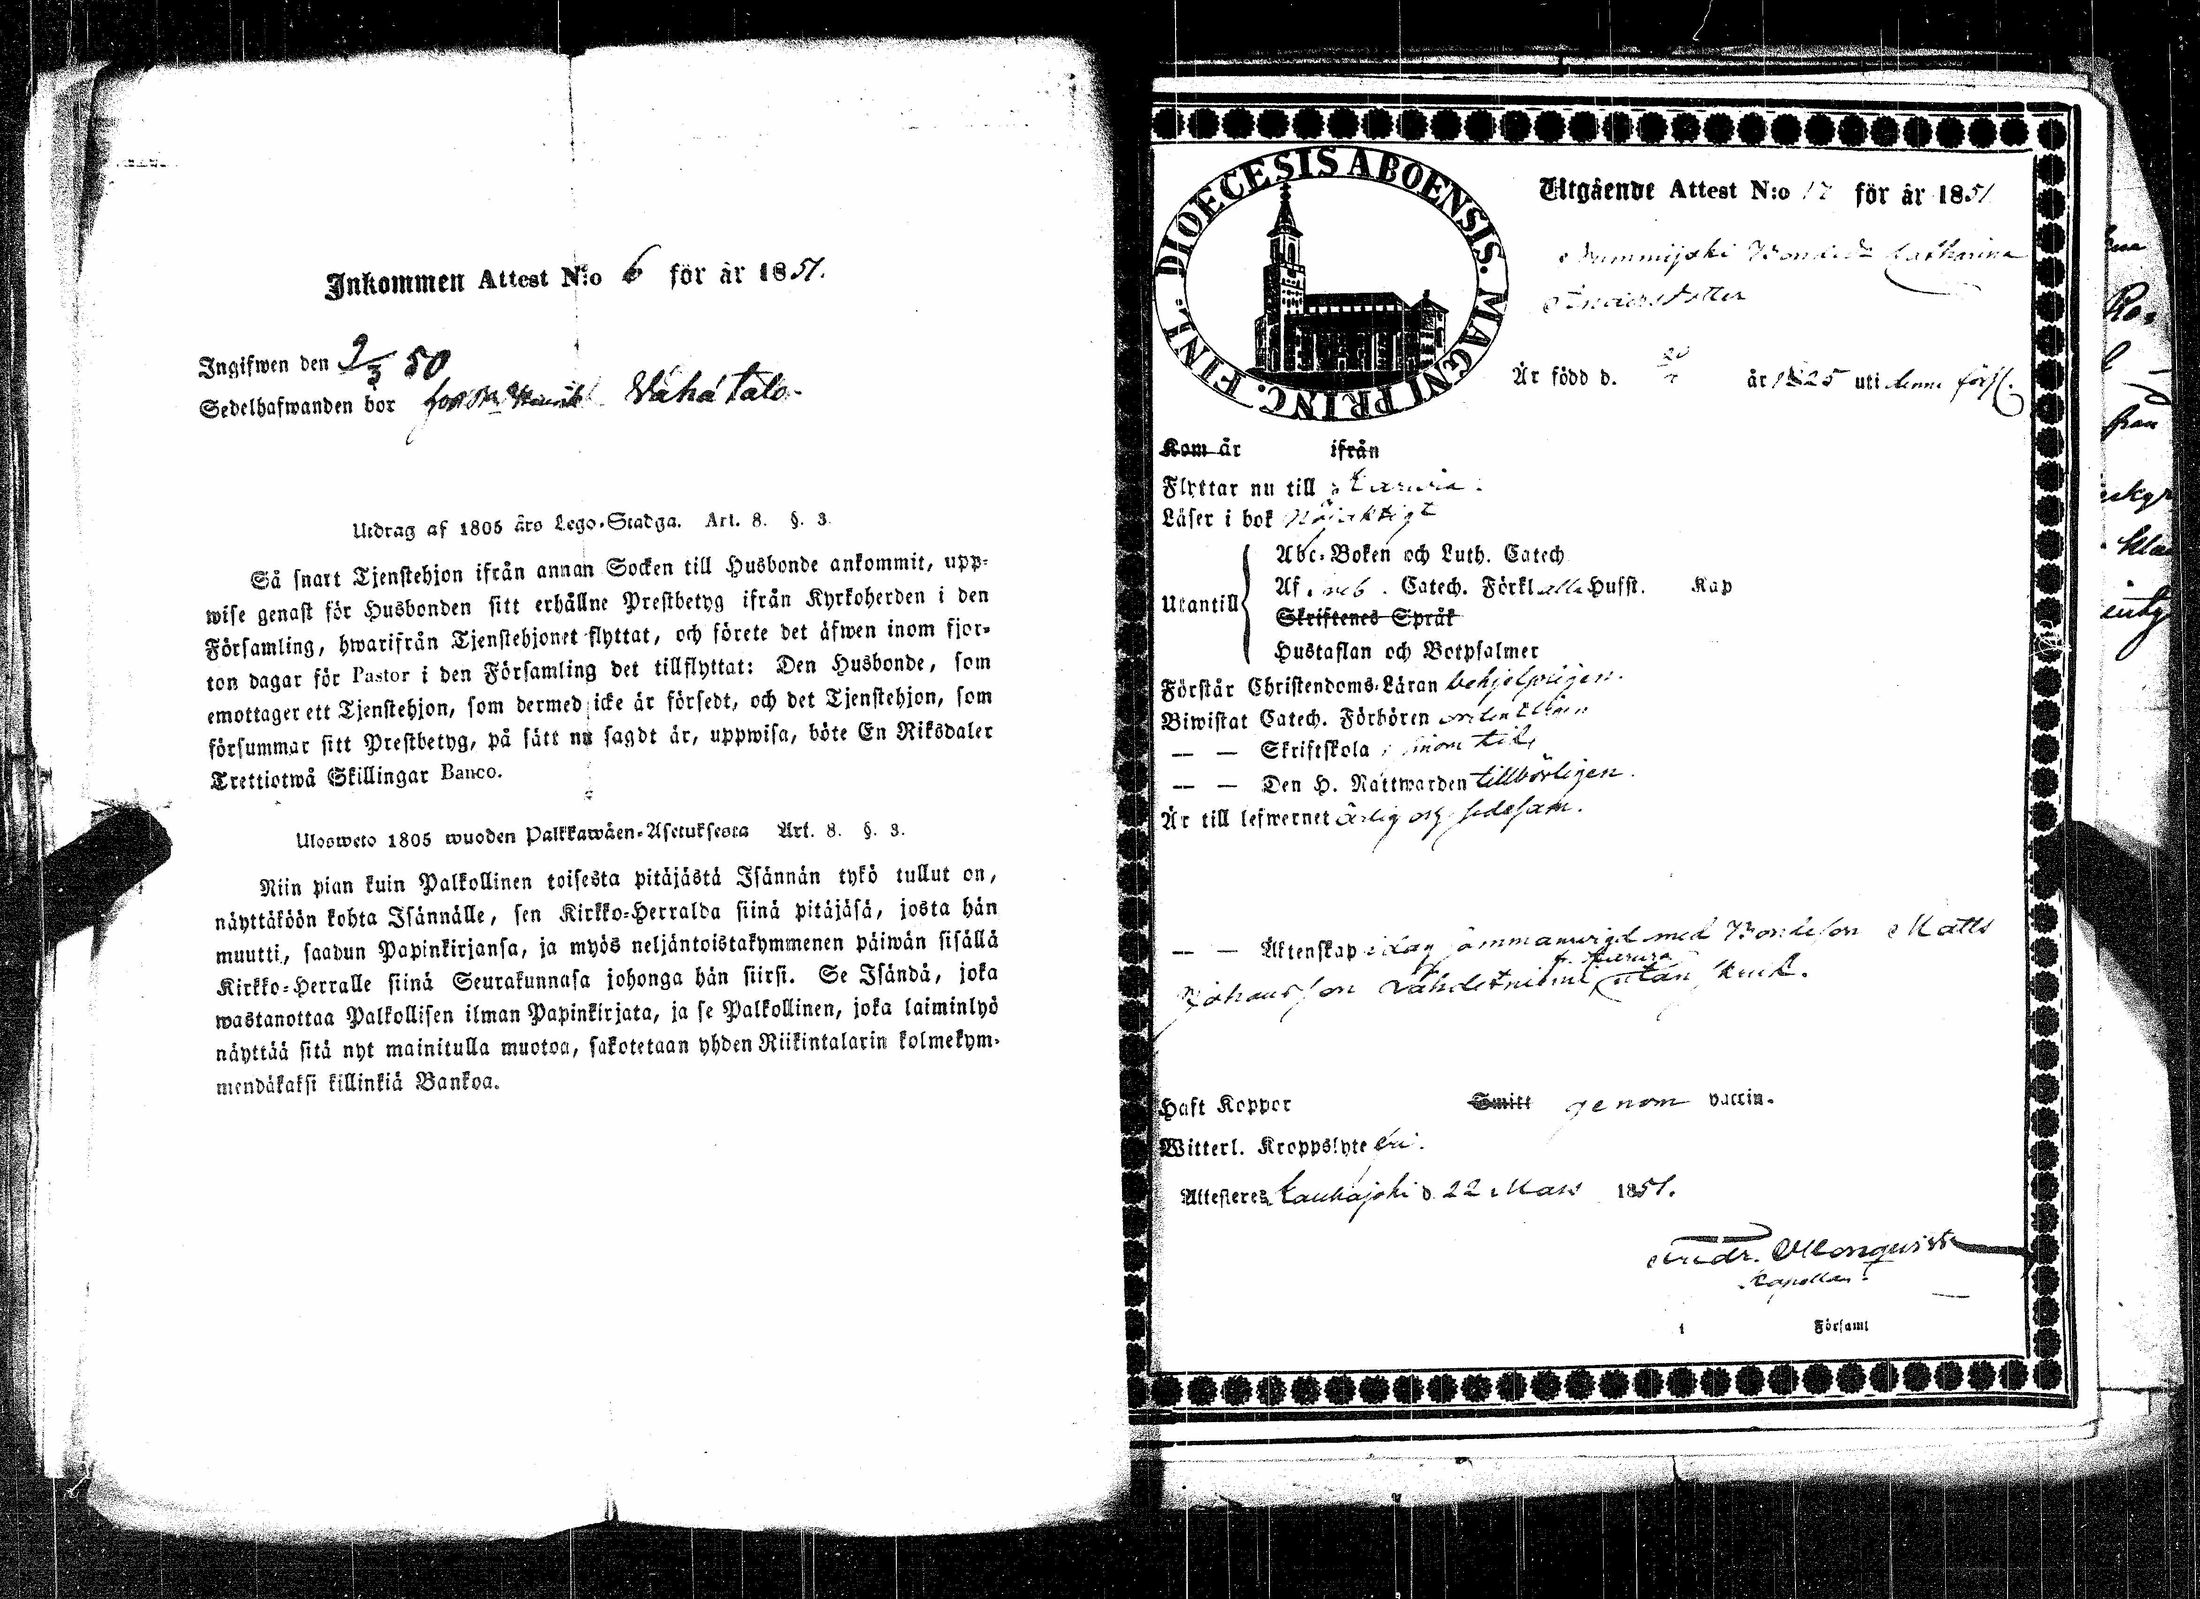 Inkommen Attest N:o 6 för år 1851.
Ingifwen den 9/3 50
Sedelhafwanden bor Vähä talo
Utdrag af 1805 års Lego-Stadga. Art. 8. §. 3.
Så snart Tjenstehjon ifrån annan Socken till Husbonde ankommit, upp-
wise genast för Husbonden sitt erhållne Prestbetyg ifrån Kyrkoherden i den
Församling, hwarifrån Tjenstehjonet flyttat, och förete det äfwen inom fjor-
ton dagar för Pastor i den Församling det tillflyttat: Den Husbonde, som
emottager ett Tjenstehjon, som dermed icke är försedt, och det Tjenstehjon, som
försummar sitt Prestbetyg, på sätt nu sagdt är, uppwisa, böte En Riksdaler
Trettiotwå Skillingar Banco.
Ulosweto 1805 wuoden Palkkawäen-Asetuksesta Art. 8. §. 3.
Niin pian kuin Palkollinen toisesta pitäjästä Isännän tykö tullut on,
näyttäköön kohta Isännälle, sen Kirkko-Herralda siinä pitäjäsä, josta hän
muutti, saadun Papinkirjansa, ja myös neljäntoistakymmenen päiwän sisällä
Kirkko-Herralle siinä Seurakunnasa johonga hän siirsi. Se Isändä, joka
wastanottaa Palkollisen ilman Papinkirjata, ja se Palkollinen, joka laiminlyö
näyttää sitä nyt mainitulla muotoa, sakotetaan yhden Riikintalarin kolmekym-
mendäkaksi killinkiä Bankoa.
DIOECESIS ABOENSIS. MAGNI PRINC. FINL.
Utgående Attest N:o 17 för år 1851
Nummijoki Bonded. Catharina
Andersdotter
Är född d. 20 år 1825 uti denna förs.
Kom år ifrån
Flyttar nu till Karvia.
Läser i bok Nöjaktigt
Utantill
Abc-Boken och Luth. Catech
Af Catech. Förkl alla Hufst. Kap
Skriftenes Språk
Hustaflan och Botpsalmer
Förstår Christendoms-Läran behjelpeligen.
Biwistat Catech. Förhören ordentligen
— — Skriftskola
— — Den H. Nattwarden tillbörligen.
Är till lefwernet ärlig och sedesam.
— — Äktenskap i dag sammanvigd med Bondeson Matts
Johansson Vähätniemi utan
Haft Koppor Smitt genom vaccin.
Witterl. Kroppslyte ej.
Attesteres Kauhajoki d. 22 Mars 1851.
Kapellan.
i Församl